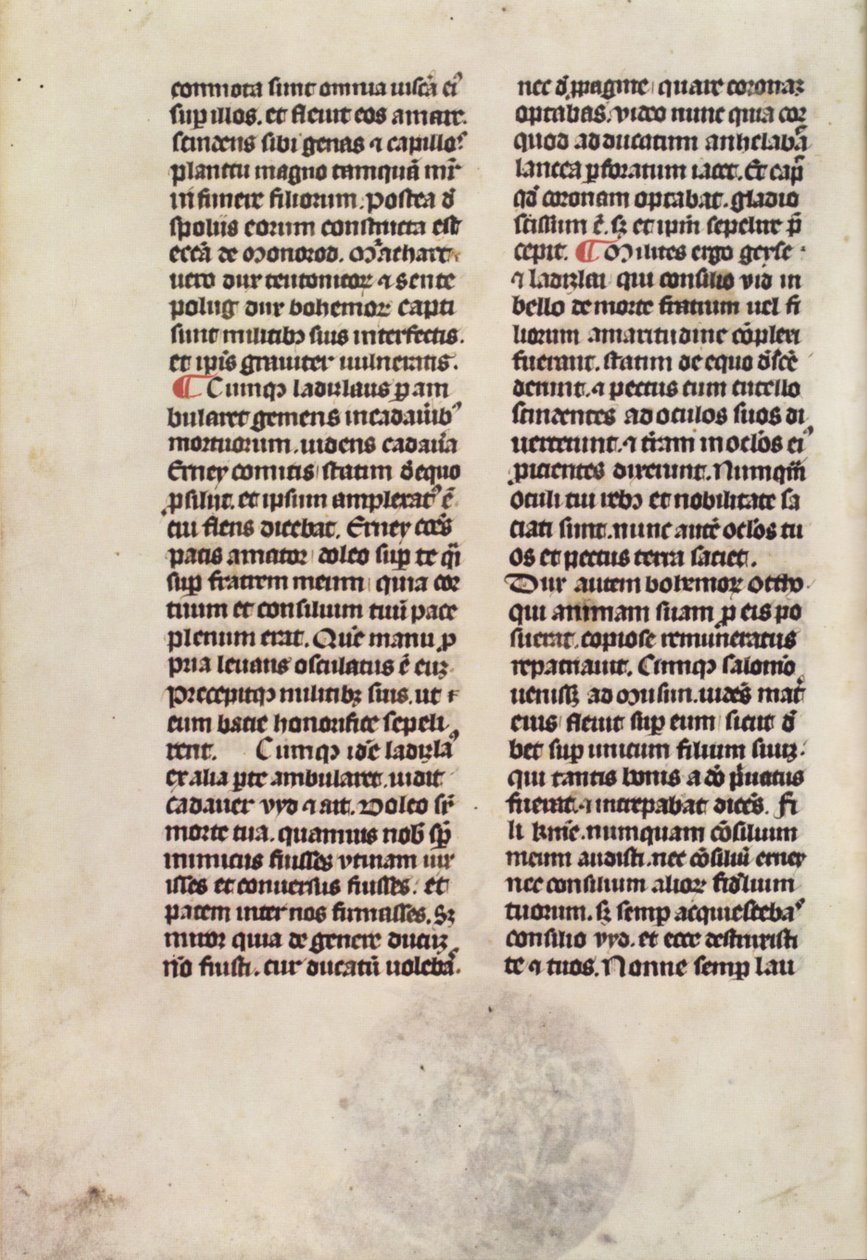 commota sunt omnia uiscā ei᾽
suꝑ illos. et fleuit eos amare.
scindens sibi genas ⁊ capillos
planctu magno tamquā mr̄
in funere filiorum. Postea d̄
spoliis eorum constructa est
eccā de Monorod. Mathart
uero dux teutonicoꝝ ⁊ sente
polug dux bohemoꝝ capti
sunt militibꝫ suis interfectis.
et ipīs grauiter uulneratis.
¶ Cumqꝫ ladizlaus ꝑam
bularet gemens in cadauīb᾽
mortuorum. uidens cadaūa
Erney comitis statim d̄ equo
ꝓsiliit. et ipsum amplexat᾽ ē
cui flens dicebat. Erney com̄s
pacis amator doleo suꝑ te q̄i
suꝑ fratrem meum quia cor
tuum et consilium tuū pace
plenum erat. Quē manu ꝓ
pria leuans osculatus ē euꝫ
Precepitqꝫ militibꝫ suis. ut
eum bacie honorifice sepeli
rent. Cumqꝫ idē ladizla᾽
ex alia ꝑte ambularet. uidit
cadauer vyd ⁊ ait. Doleo sr̄
morte tua. quamuis nob̄ sꝑ
inimicus fuisses vtinam uix
isses et conuersus fuisses. et
pacem inter nos firmasses. Sꝫ
miror quia de genere ducuꝫ
nō fuisti. cur ducatū uolebā.
nec d̄ ꝓpagine quare coronaꝫ
optabas. video nunc quia cor
quod ad ducatum anhelabā
lancea ꝑforatum iacet. Et cap̄
qd̄ coronam optabat. gladio
scissum ē. sꝫ et ipm̄ sepelire p̄
cepit. ¶ Milites ergo geyse
⁊ ladizlai qui consilio vid in
bello de morte fratrum uel fi
liorum amaritudine cōpleti
fuerant. statim de equo d̄scē
derunt. ⁊ pectus eum cutello
scindentes ad oculos suos di
uerterunt. ⁊ tr̄am in oclōs ei᾽
ꝓicientes dixerunt. Numqm̄
oculi tui rebꝫ et nobilitate sa
ciati sunt. nunc autē oclōs tu
os et pectus terra saciet.
Dux autem bohemoꝝ Ottho
qui animam suam ꝓ eis po
suerat. copiose remuneratus
repatriauit. Cumqꝫ salomō
uenisꝫ ad Musun. uidēs mat̄
eius fleuit suꝑ eum sicut d̄
bet suꝑ unicum filium suuꝫ.
qui tantis bonis a dō p̄uatus
fuerat. ⁊ increpabat dicēs. Fi
li karissime. numquam cōsilium
meum audisti. nec cōsiliū erney
nec consilium alioꝝ fidelium
tuorum. sꝫ semꝑ acquiesceba᾽
consilio vyd. et ecce destruxisti
te ⁊ tuos. Nonne semꝑ lau